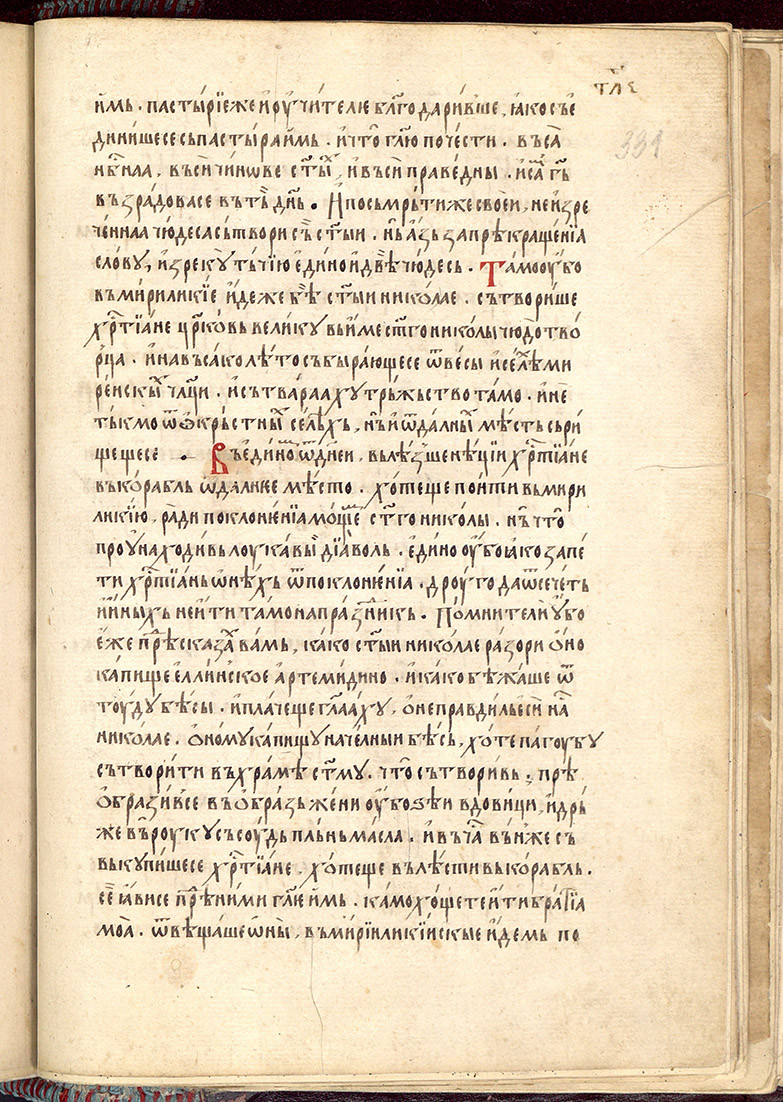 тл҃є
331
и҆мь. пастыріе же и҆ оу҆чителіе бл҃годаривше, ꙗ҆ко съе
динише се сь пастыра и҆мь. и҆ что̀ гл҃ю по чести. въса
нб҃нїла, въси чи́нѡве ст҃ых, и҆ въси праве́дны. и҆ са́м гь҃
въ́зрадова се въ тъ̏ дн҃ь. И҆ по сьмрьти же своеи, неизре
че́ннаа чюдеса сътвори съ̏ ст҃ыи. нь̏ а҆зь за прѣкраще́нїа
словꙋ, и҆зрекꙋ тъчїю є҆дино и҆ двѣ̀ чю́десь. Та́мо оу҆бо
въ мирилики́е и҆де́же бѣ̏ ст҃ыи никѡ́лае. сътвори́ше
хр҃тїа́не цр҃ковь вели́кꙋ вь и҆ме ст҃го нико́лы чюдотво́
рца. и҆ на въсако лѣ́то събыра́юще се ѿ ве́сы и҆ се́лѣ ми
ре́искых чл҃ци. и҆ сътвараа́хꙋ трь́жьство та́мо. и҆ не
ты́кмо ѿ ѻ҆кръстных се́лѣхь, нь̏ и҆ ѿ да́лных мѣ́сть сьри
ще́ще се. Въ є҆ди́но ѿ дне́и, вьлѣ́зше нѣ́цїи хр҃тїа́не
въ кора́бль ѿ да́лнее мѣ́сто. хо́теще поити вь мири
ликїю, ра́ди поклоне́нїа мо́щем ст҃го нико́лы. нь̏ что̀
проꙋнаходи́вь лоука́вы дїа́воль. є҆ди́но оу҆бо ꙗ҆ко запе́
ти хр҃тїа́нь ѡ҆нѣ́хь ѿ поклоне́нїа. дрꙋ́го да ѿсе́четь
и҆ и҆ны́хь не и҆ти та́мо на пра́зникь. По́мните ли оу҆бо
є҆́же прѣ̏сказах ва́мь, ка́ко ст҃ыи нико́лае разори̏ ѻ҆но
ка́пище є҆лли́нское а҆ртеми́дино. и҆ ка́ко бѣжа́ше ѿ
тоу́дꙋ бѣ́сы. и҆ пла́чеще гл҃аахꙋ, ѻ҆неправди́ль є҆си на́с
никѡ́лае. ѻ҆но́мꙋ ка́пищꙋ наче́лныи бѣ́сь, хо́те пагоу́бꙋ
сътвори́ти въ хра́мѣ ст҃мꙋ. что̀ сътвори́вь; прѣ
ѻ҆брази́в се въ ѻ҆бразь же́ни оу҆бо́зѣи вдови́ци, и҆ дрь
же въ роу́кꙋ съсоу́дь пль́нь ма́сла. и҆ въ ча́с вън҆же съ
въкꙋпи́ше се хр҃тїа́не, хо́теще вълѣ́сти въ кора́бль.
се̏ ꙗ҆ви се прѣ̏д ни́ми гл҃ю и҆мь. ка́мо хо́щете и҆ти бра́тїа
моа̀. ѿвѣща́ше ѡ҆ны̀, въ ми́рїи лики́искые и҆́демь по